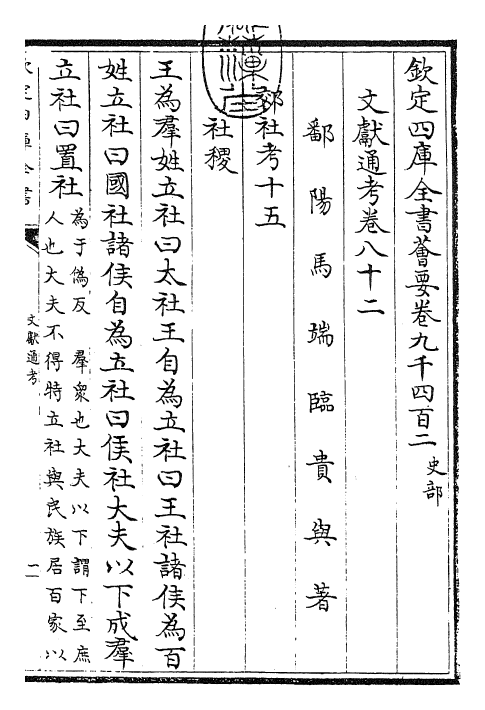 欽定四庫全書薈要卷九千四百二 史部
文獻通考卷八十二
鄱陽馬端臨貴與著
郊社考十五
社稷
王為羣姓立社曰太社王自為立社曰王社諸侯為百
姓立社曰國社諸侯自為立社曰侯社大夫以下成羣
立社曰置社 為于偽反 羣衆也大夫以下謂下至庶
人也大夫不得特立社與民族居百家以
文獻通考
一